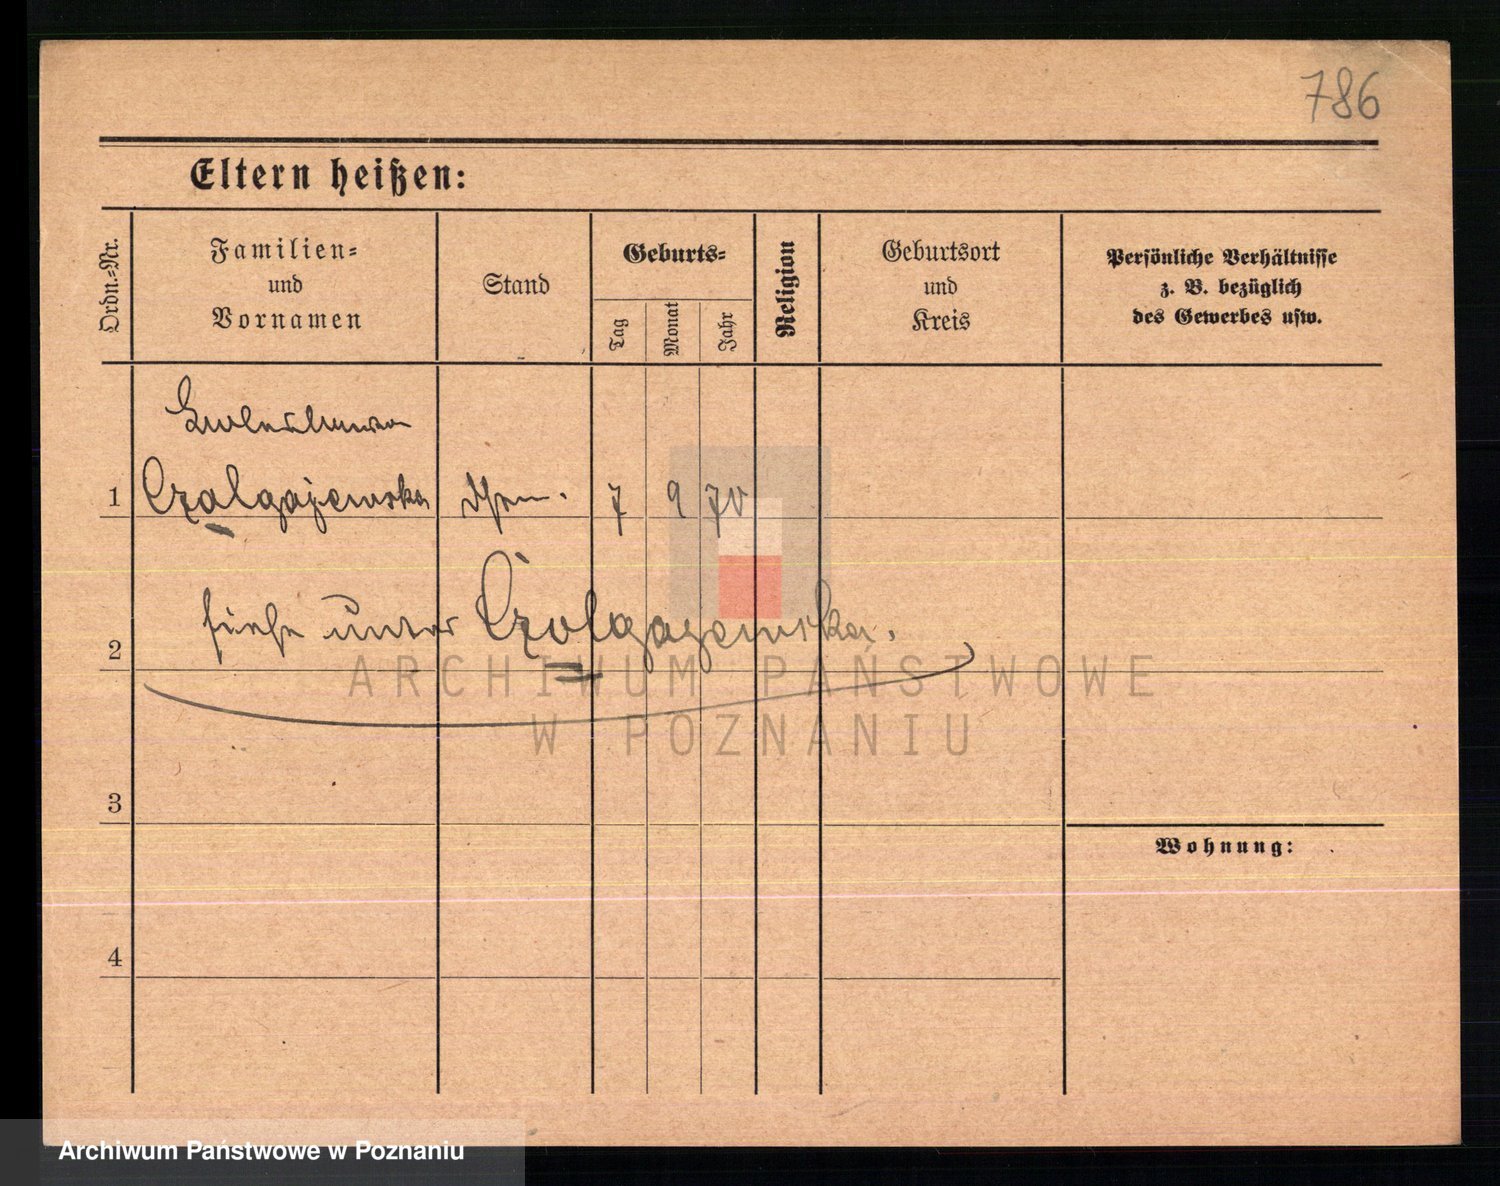 786
Eltern heißen:
Ordn.-Nr.
Familien-
und
Vornamen
Stand
Geburts-
Tag
Monat
Jahr
Religion
Geburtsort
und
Kreis
Persönliche Verhältnisse
z. B. bezüglich
des Gewerbes usw.
1 Czalgajewska 7 9 70
2 siehe unter Czolgajewska.
ARCHIWUM PAŃSTWOWE
W POZNANIU
3
Wohnung:
4
Archiwum Państwowe w Poznaniu